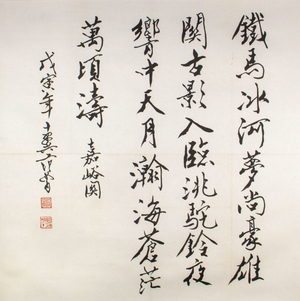 鐵馬冰河夢尚豪雄
関古影入臨洮駝鈴夜
響中天月瀚海蒼茫
萬頃濤 嘉峪関
戊寅年